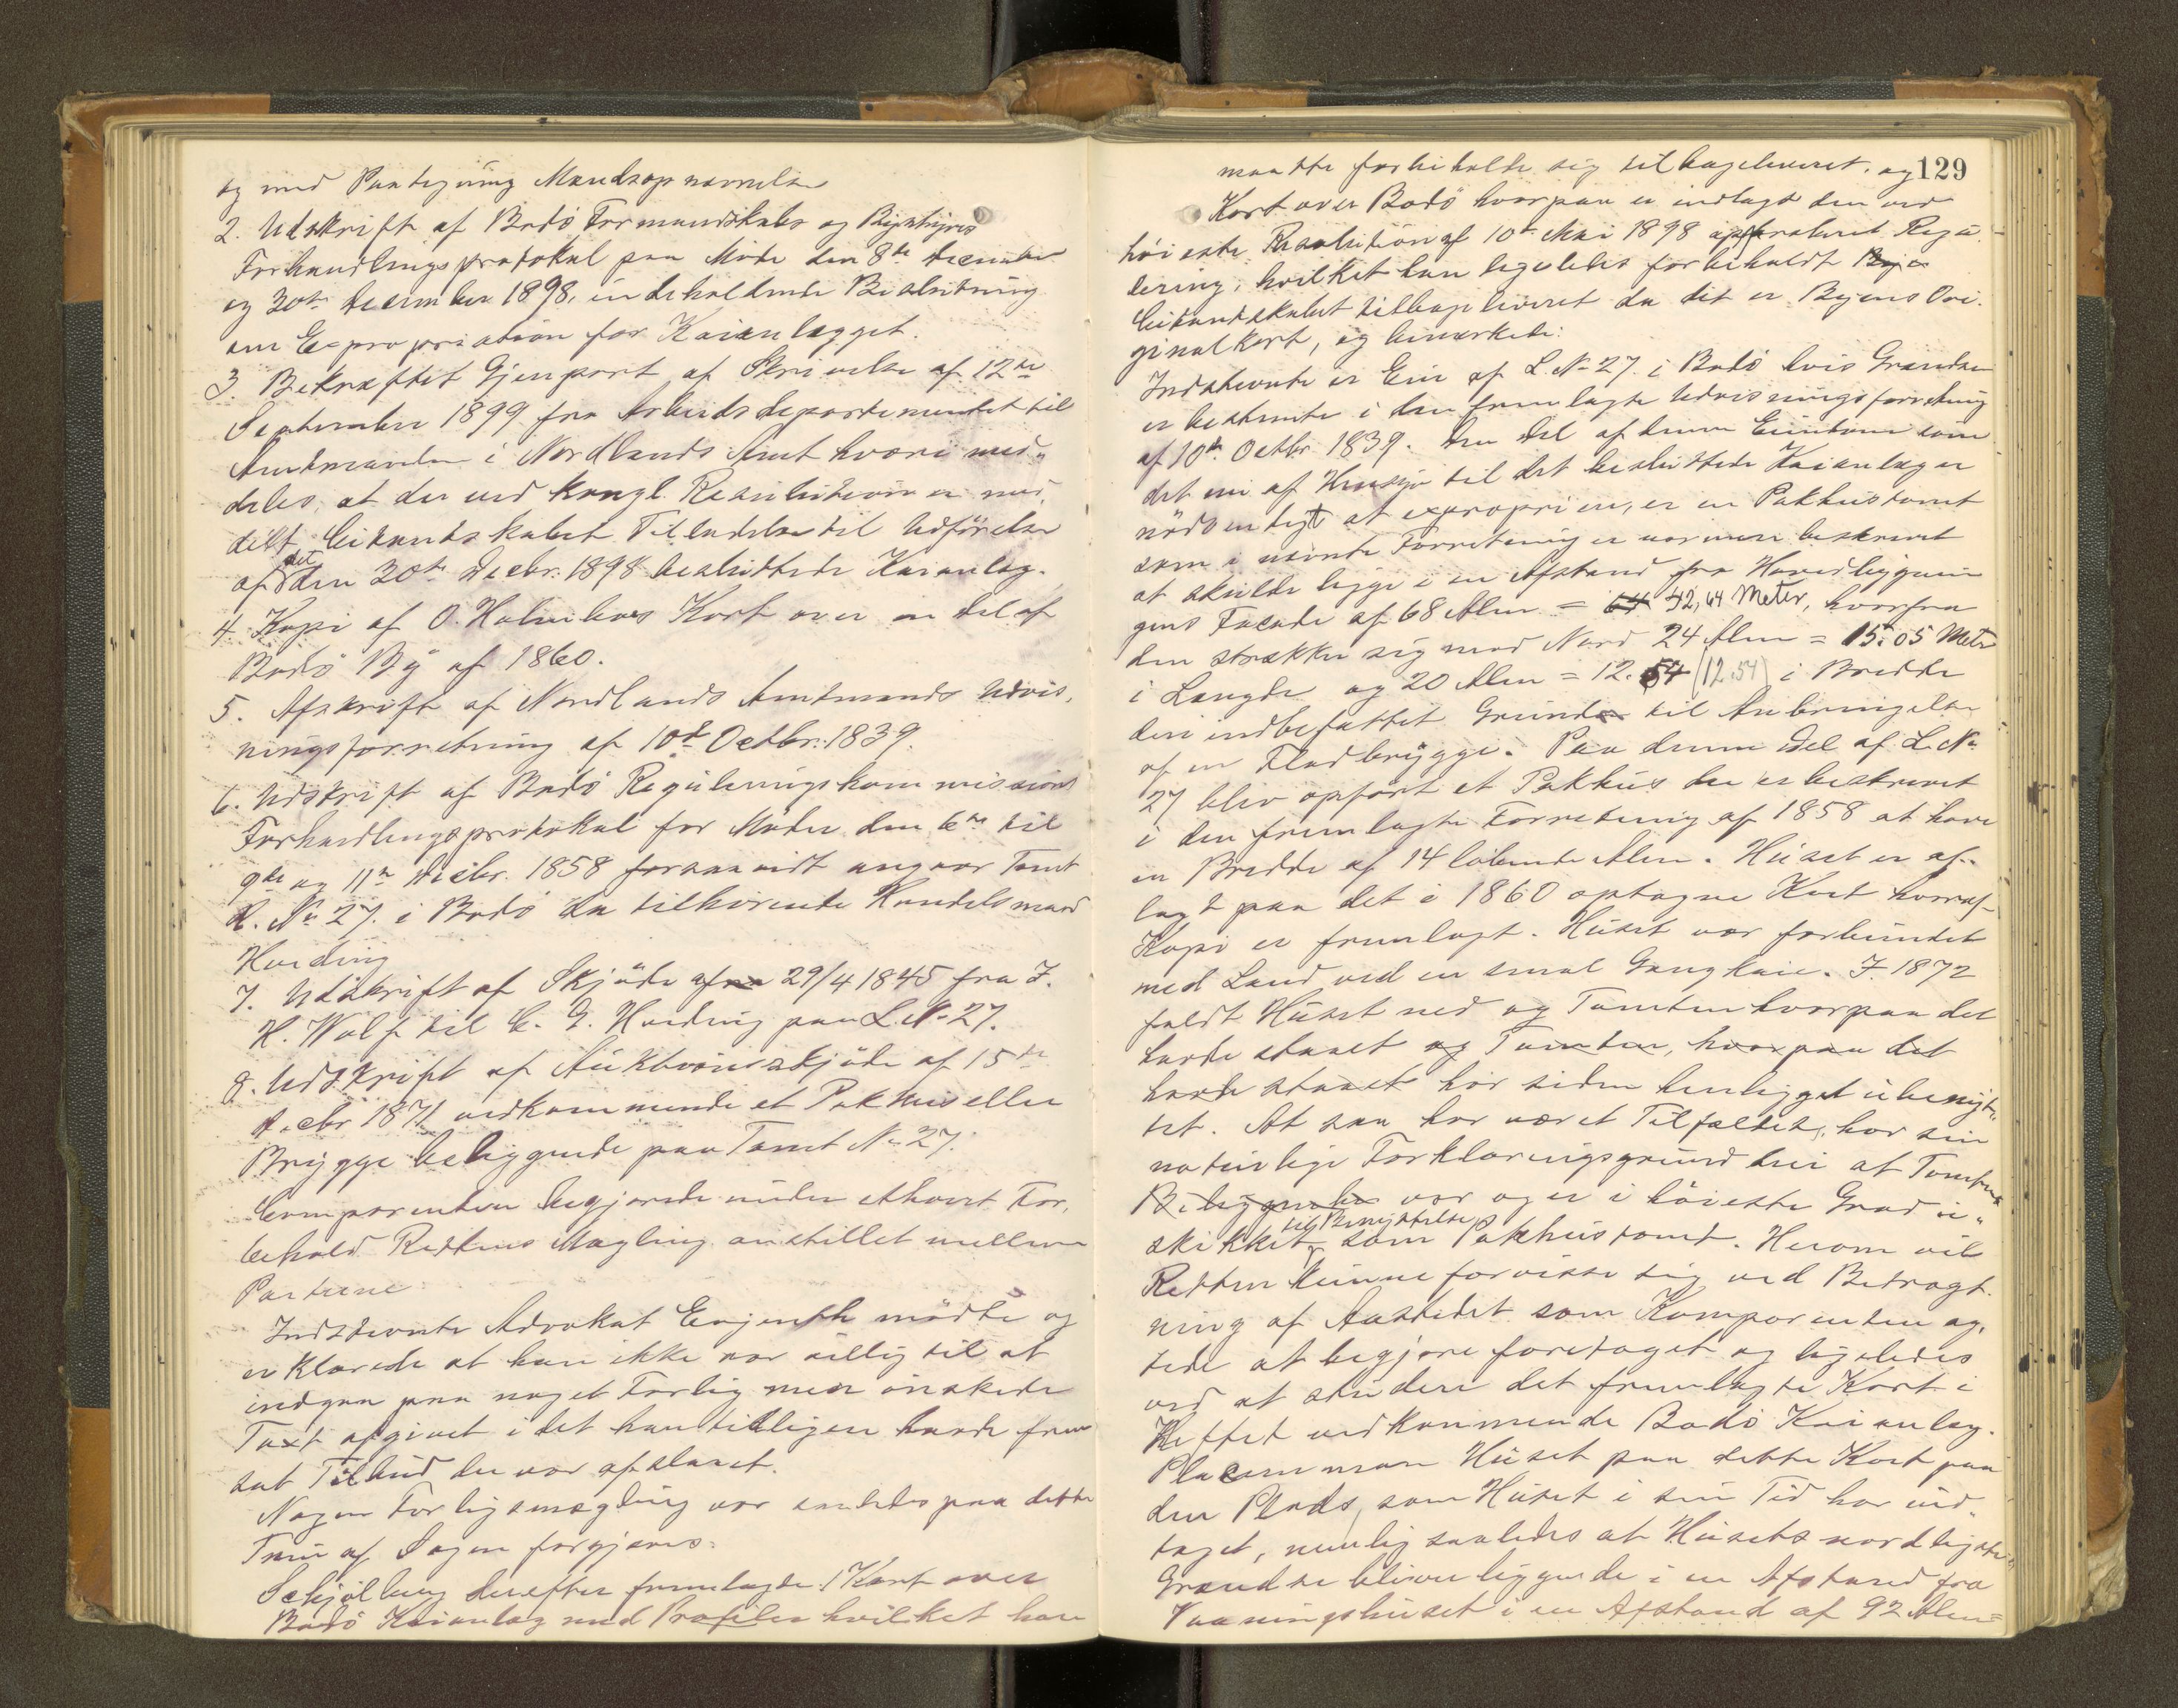 og med Paategning Mandsopnævnelse
2. Udskrift af Bodö Formandskabs og Bystyres
Forhandlingsprotokol paa Möde den 8de December
og 30te December 1898, indeholdende Beslutning
om Expropriation for Kaianlægget.
3. Bekræftet Gjenpart af Skrivelse af 12te
September 1899 fra Arbeidsdepartementet til
Amtmanden i Nordlands Amt hvori med-
deles, at der ved kongl. Resolution er med
delt Citantskabet Tilladelse til Udförelse
af det den 30te Decbr. 1898 besluttede Kaianlæg.
4. Kopi af O. Holmboes Kort over en del af
Bodö By af 1860.
5. Afskrift af Nordlands Amtmands Udvis-
ningsforretning af 10de Octbr. 1839.
6. Udskrift af Bodö Reguleringskommissions
Forhandlingsprotokol for Möder den 6te til
9de og 11te Decbr. 1858 forsaavidt angaar Tomt
L. No 27 i Bodö da tilhörende Handelsmand
Harding
7. Udskrift af Skjöde af 29/4 1845 fra J.
H. Wolf til C. G. Harding paa L. No 27.
8. Udskrift af Auktionsskjöde af 15de
Decbr 1871 vedkommende et Pakhus eller
Brygge beliggende paa Tomt No 27.
Comparenten begjærede under ethvert For-
behold Rettens Mægling anstillet mellem
Parterne.
Indstevnte Advokat Enjenth mödte og
erklærede at han ikke var villig til at
indgaa paa noget Forlig men önskede
Taxt afgivet idet han tidligere havde frem
sat Tilbud der var afslaaet.
Nogen Forligsmægling var saaledes paa dette
Trin af Sagen forgjæves.
Schjölberg derefter fremlagde: 1 Kart over
Bodö Kaianlæg med Profiler hvilket han
129
maatte forbeholde sig tilbageleveret. og
Kort over Bodö hvorpaa er indlagt den ved
höieste Resolution af 10de Mai 1898 approberet Regu-
lering, hvilket han ligeledes forbeholdt By
Citantskabet tilbageleveret da det er Byens Ori-
ginalkart, og bemærkede:
Indstevnte er Eier af L. No 27 i Bodö hvis Grændser
er bestemte i den fremlagte Udvisningsforretning
af 10de Octbr. 1839. Den Del af denne Eiendom som
det nu af Hensyn til det besluttede Kaianlæg er
nödvendigt at expropriere, er en Pakhustomt
som i nævnte Forretning er nærmere beskrevet
at skulde ligge i en Afstand fra Hovedbygnin
gens Facade af 68 Alen = 64 42,64 Meter, hvorfra
den strækker sig mod Nord 24 Alen = 15.05 Meter
i Længde og 20 Alen = 12.54 (12.54) i Bredde
deri indbefattet Grunden til Anbringelse
af en Flodbrygge. Paa denne Del af L. No
27 blev opfört et Pakhus der er beskrevet
i den fremlagte Forretning af 1858 at have
en Bredde af 14 löbende Alen. Huset er af-
lagt paa det i 1860 optagne Kort hvoraf
Kopi er fremlagt. Huset var forbundet
med Land ved en smal Gangkaie. I 1872
faldt Huset ned og Tomten hvorpaa det
havde staaet og Tomten, hvorpaa det
havde staaet har siden henligget ubenyt-
tet. At saa har været Tilfældet, har sin
naturlige Forklaringsgrund deri at Tomtens
Beliggenhed var og er i höieste Grad u-
skikket til Benyttelse som Pakhustomt. Herom vil
Retten kunne forvisse sig ved Betragt-
ning af Aastedet som Komparenten ag-
tede at begjære foretaget og ligeledes
ved at studere det fremlagte Kort i
Heftet vedkommende Bodö Kaianlæg.
Placerer man Huset paa dette Kort paa
den Plads, som Huset i sin Tid har ind-
taget, nemlig saaledes at Husets nordligste
Grændse bliver liggende i en Afstand fra
Vaaningshuset i en Afstand af 92 Alen =